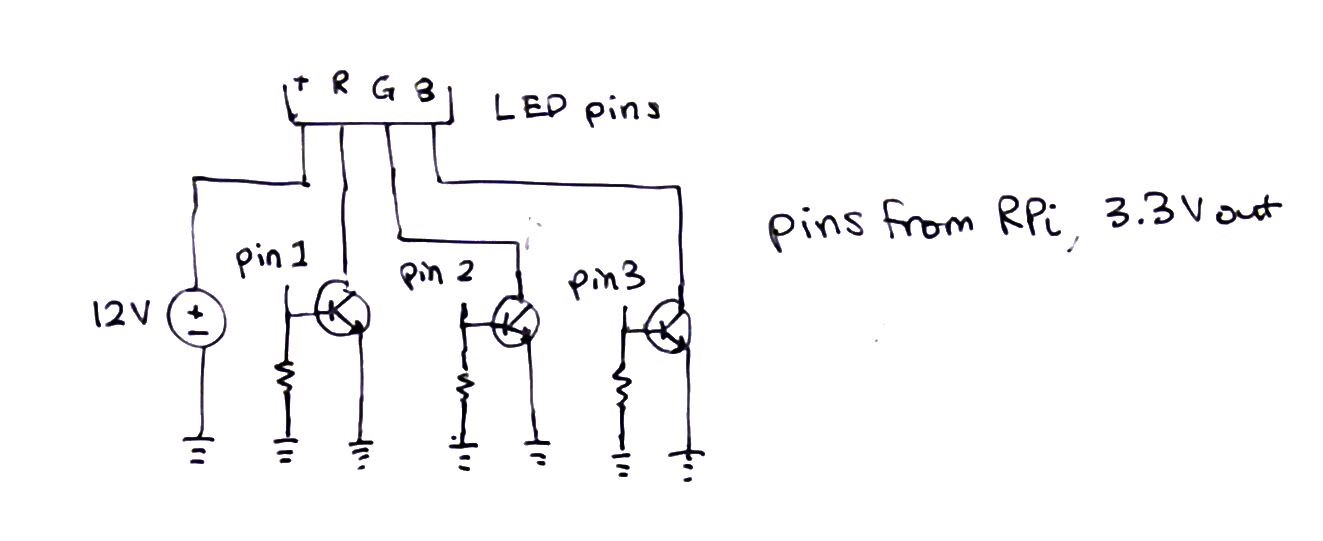 + R G B
LED pins
pins from RPi, 3.3V out
pin 1
pin 2
pin 3
12V
+
-